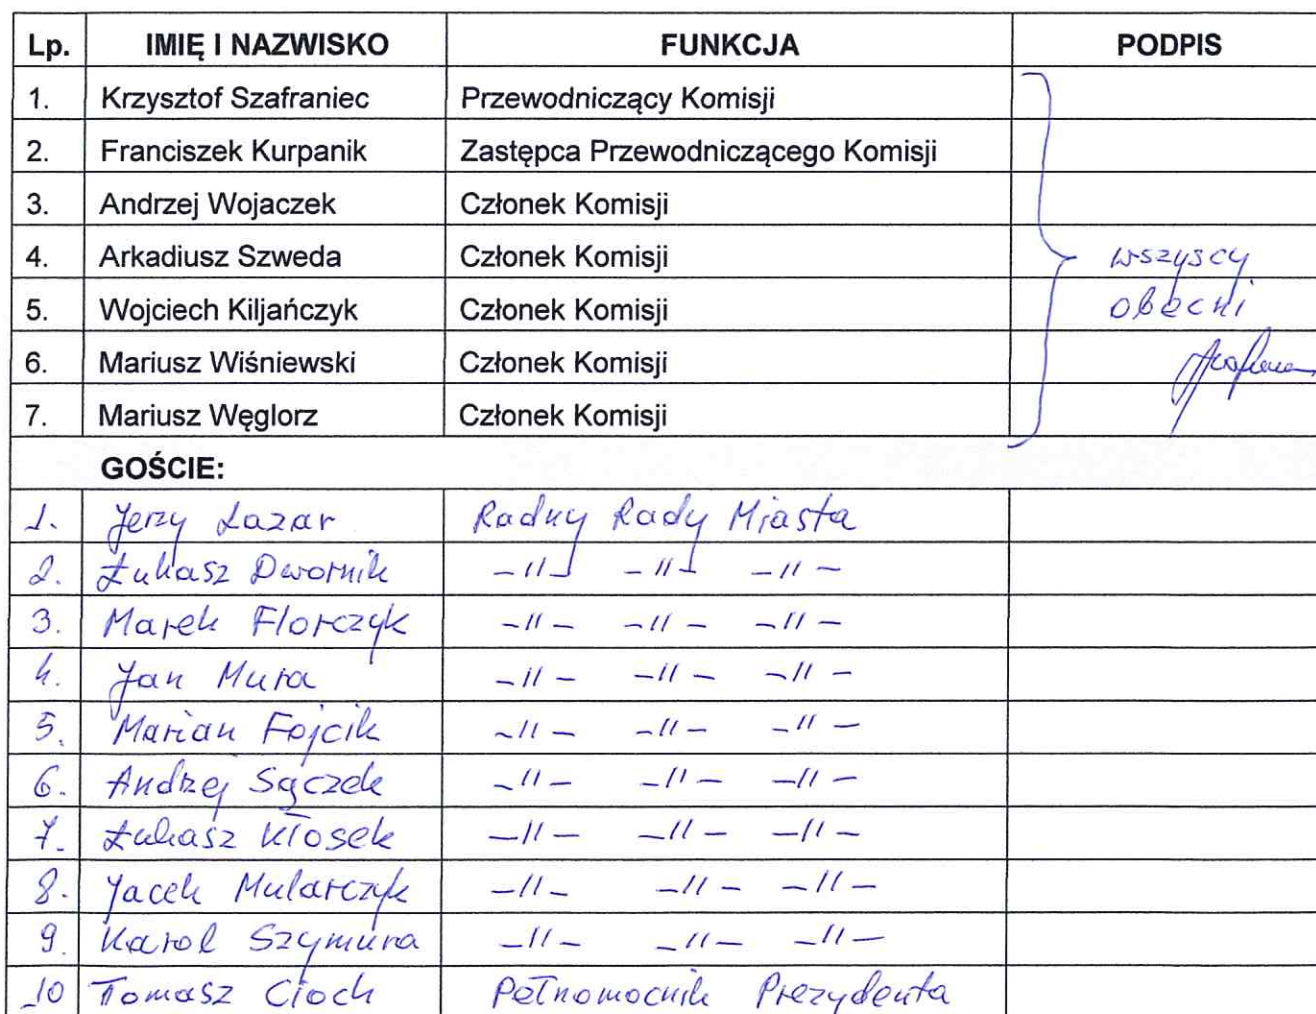 Lp. IMIĘ I NAZWISKO FUNKCJA PODPIS
1. Krzysztof Szafraniec Przewodniczący Komisji
2. Franciszek Kurpanik Zastępca Przewodniczącego Komisji
3. Andrzej Wojaczek Członek Komisji
4. Arkadiusz Szweda Członek Komisji wszyscy
5. Wojciech Kiljańczyk Członek Komisji obecni
6. Mariusz Wiśniewski Członek Komisji
7. Mariusz Węglorz Członek Komisji
GOŚCIE:
1. Jerzy Lazar Radny Rady Miasta
2. Łukasz Dwornik -//- -//- -//-
3. Marek Florczyk -//- -//- -//-
4. Jan Mura -//- -//- -//-
5. Marian Fojcik -//- -//- -//-
6. Andrzej Sączek -//- -//- -//-
7. Łukasz Kłosek -//- -//- -//-
8. Jacek Mularczyk -//- -//- -//-
9. Karol Szymura -//- -//- -//-
10 Tomasz Cioch Pełnomocnik Prezydenta